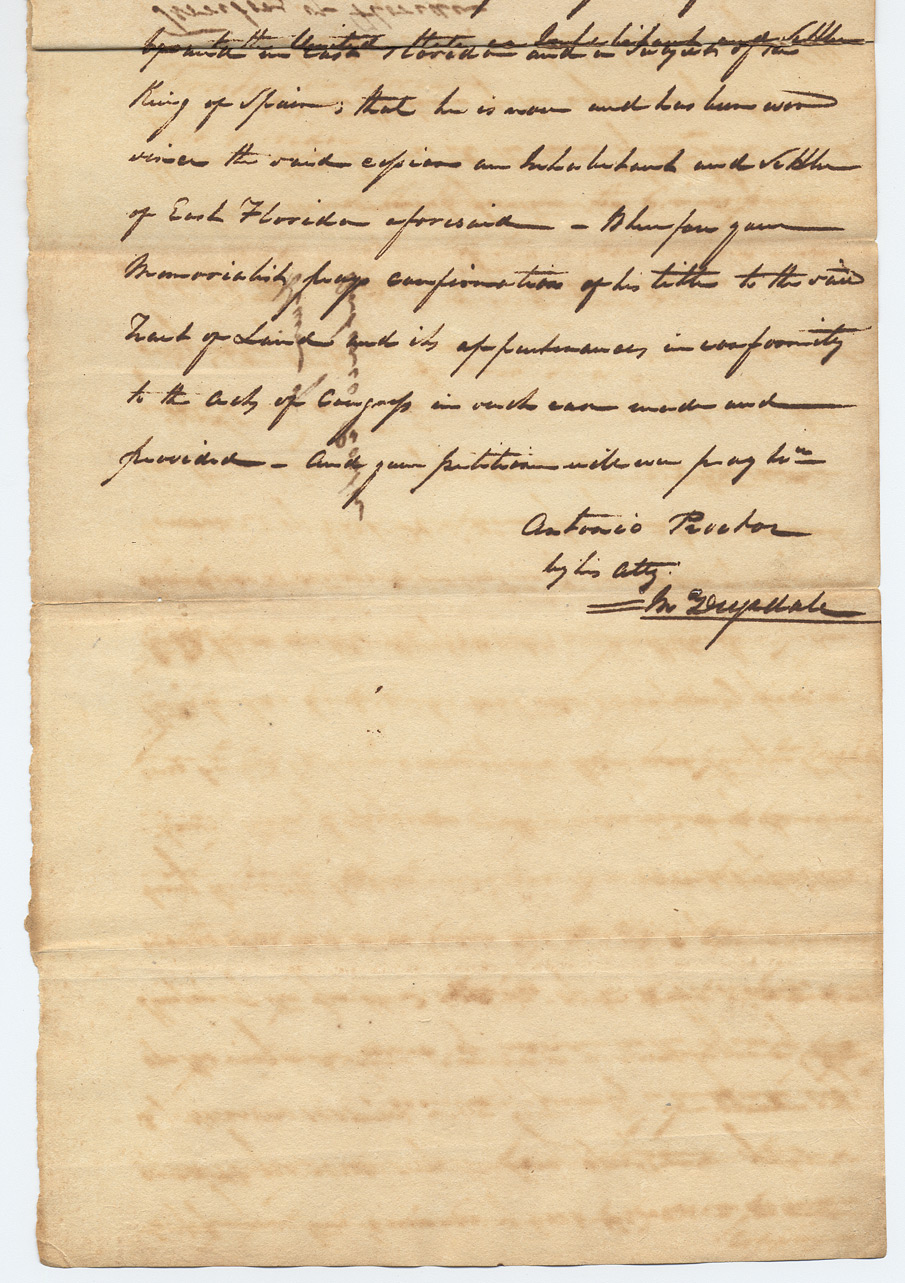 in East Florida and a subject of the
King of Spain; that he is now and has been ever
since the said cession an Inhabitant and Settler
of East Florida aforesaid — Wherefore your
Memorialist prays confirmation of his title to the said
Tract of Land and its appurtenances in conformity
to the Acts of Congress in such case made and
provided — And your petitioner will ever pray &c
Antonio Proctor
by his Atty.
Drysdale